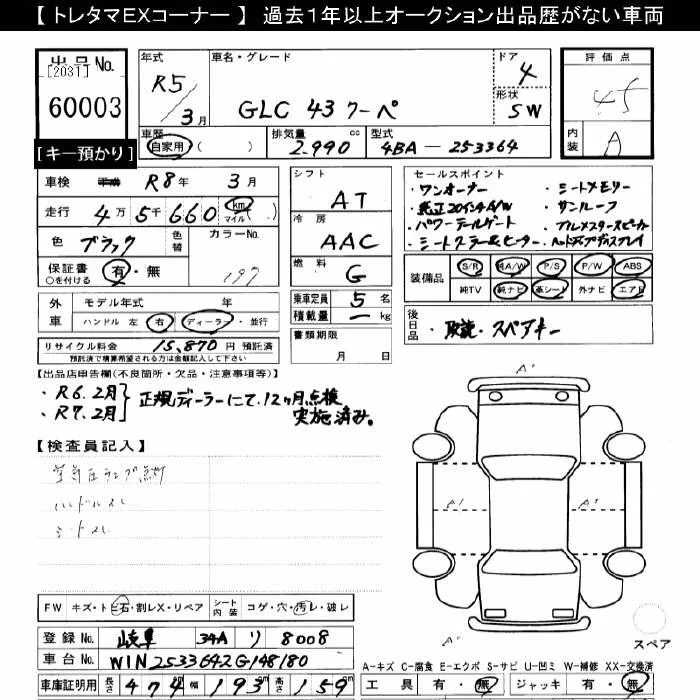 【 トレタマEXコーナー 】 過去1年以上オークション出品歴がない車両
出品No. [2031] 60003
[キー預かり]
年式 R5/3月
車名・グレード GLC 43 クーペ
ドア 4
形状 SW
評価点 4.5
内装 A
車歴 自家用 ( )
排気量 2.990 cc
型式 4BA-253364
車検 R8年 3月
走行 4万5千660 km マイル( )
色 ブラック
色替
カラーNo. 197
保証書 有・無
○を付ける
シフト AT
冷房 AAC
燃料 G
乗車定員 5名
積載量 - kg
書類期限 月 日
セールスポイント
・ワンオーナー ・シートメモリー
・純正20インチA/W ・サンルーフ
・パワーテールゲート ・ブルメスタースピーカー
・シートエアー&ヒーター ・ヘッドアップディスプレイ
装備品 S/R 純A/W P/S P/W ABS
純TV 純ナビ 革シート 外ナビ エアB
外車 モデル年式 年
ハンドル 左 右 ディーラー・並行
リサイクル料金 15,870円 預託済
預託済で積算希望される方は金額記入して下さい
後日品 ・取説・スペアキー
【出品店申告欄(不良箇所・欠品・注意事項等)】
・R6.2月
・R7.2月
正規ディーラーにて、12ヶ月点検
実施済み。
【検査員記入】
空気圧ランプ点灯
ハンドルスレ
シートスレ
A'
A' A'
A'
FW キズ・トビ石・割レX・リペア シート内装 コゲ・穴・汚レ・破レ
登録No. 岐阜 34A リ 8008
車台No. W1N2533642G148180
車庫証明用 長さ 474cm 幅 193cm 高さ 159cm
スペア
A-キズ C-腐食 E-エクボ S-サビ U-凹ミ W-補修 XX-交換済
工具 有・無 ジャッキ 有・無